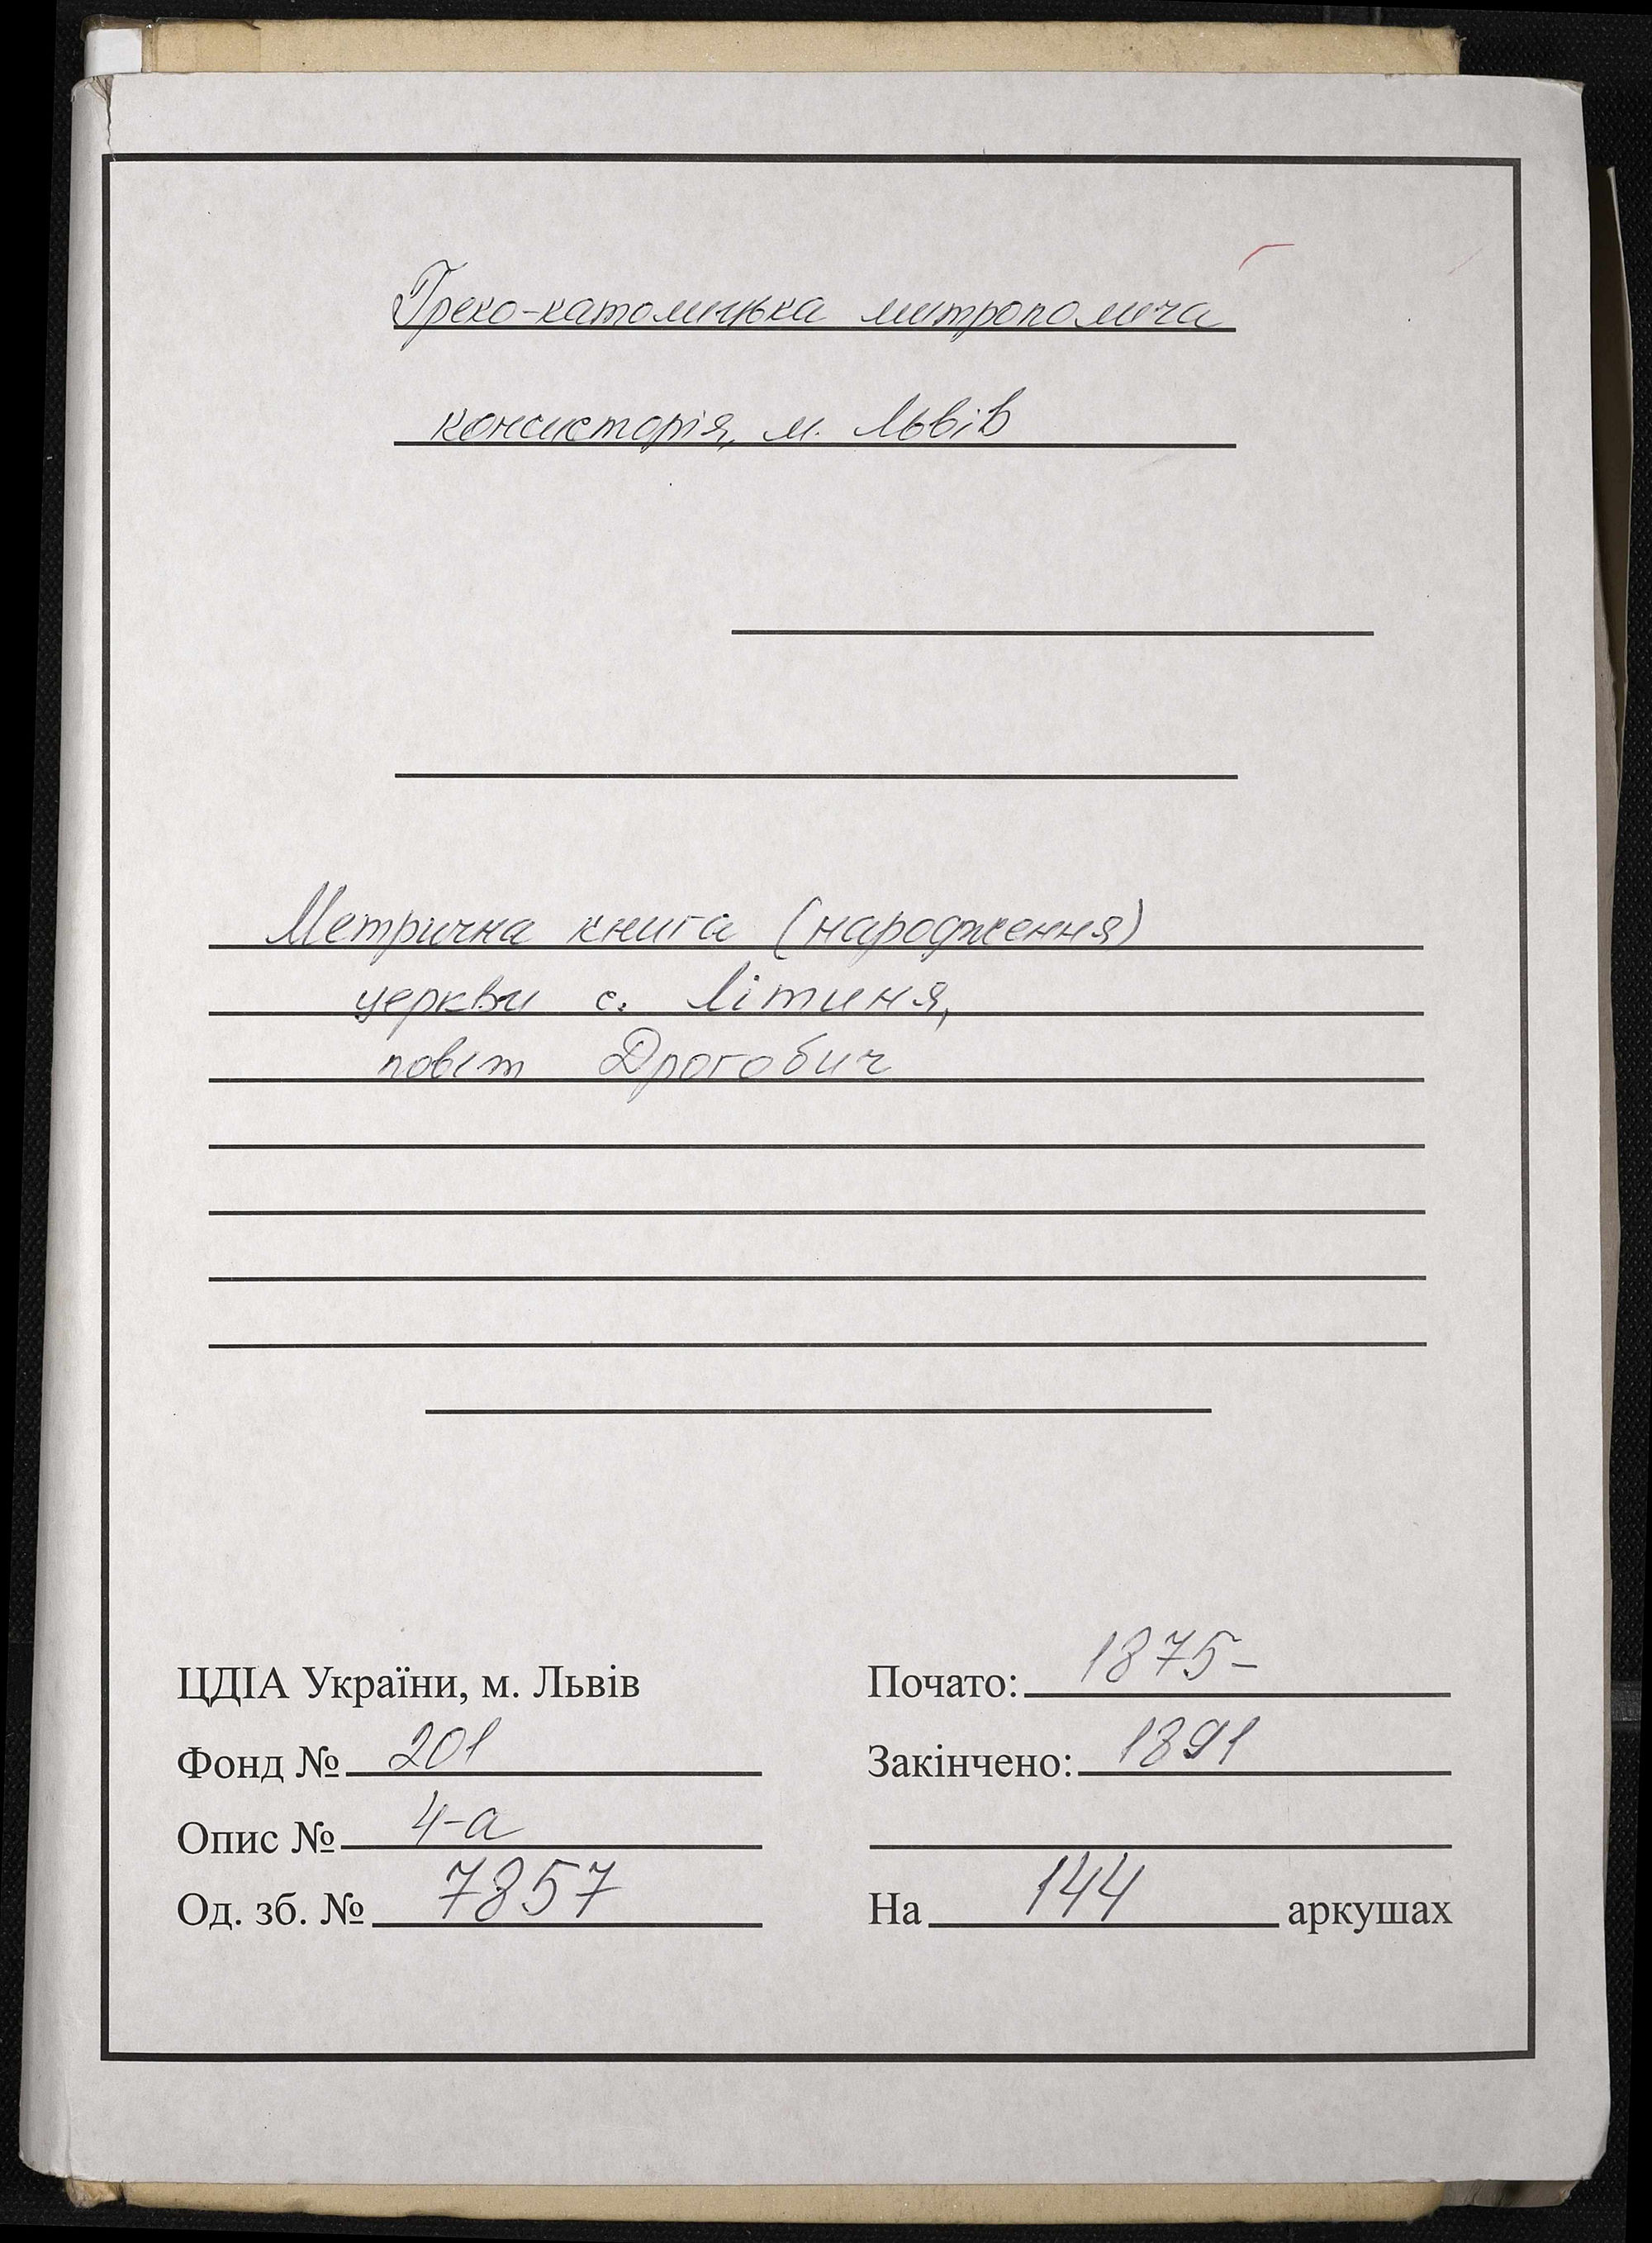 Греко-католицька митрополича
консисторія, м. Львів
Метрична книга (народження)
церкви с. Літиня,
повіт Дрогобич
ЦДІА України, м. Львів
Фонд № 201
Опис № 4-а
Од. зб. № 7857
Почато: 1875-
Закінчено: 1891
На 144 аркушах